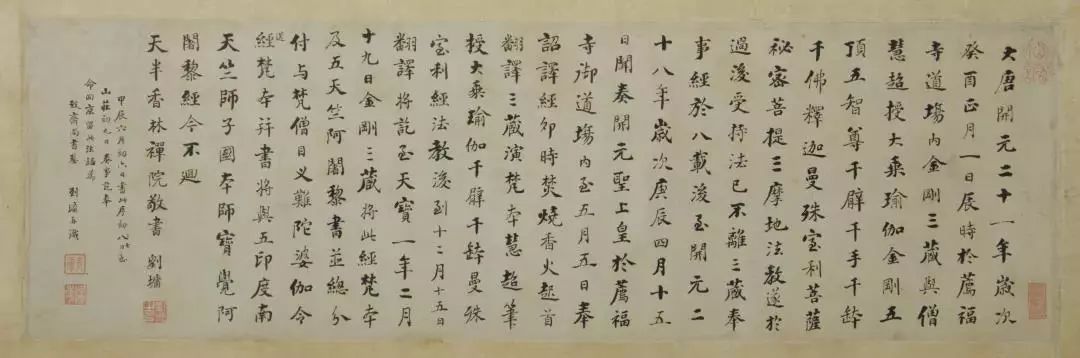 大唐開元二十一年歲次
癸酉正月一日辰時於薦福
寺道場內金剛三藏與僧
慧超授大乘瑜伽金剛五
頂五智尊千臂千手千缽
千佛釋迦曼殊室利菩薩
秘密菩提三摩地法教遂於
過後受持法已不離三藏奉
事經於八載後至開元二
十八年歲次庚辰四月十五
日聞奏開元聖上皇於薦福
寺御道場內至五月五日奉
詔譯經卯時焚燒香火起首
翻譯三藏演梵本慧超筆
授大乘瑜伽千臂千缽曼殊
室利經法教後到十二月十五日
翻譯將訖至天寶一年二月
十九日金剛三藏將此經梵本
及五天竺阿闍黎書並總分
付与梵僧目义難陀婆伽令
送經梵本并書將與五印度南
天竺師子國本師寶覺阿
闍黎經今不迴
天半香林禪院敬書 劉墉
甲辰六月初六日書此序初八至
山莊初九日奏事訖奉
命回京留此法語為
敬齋尚書鑒 劉墉并識